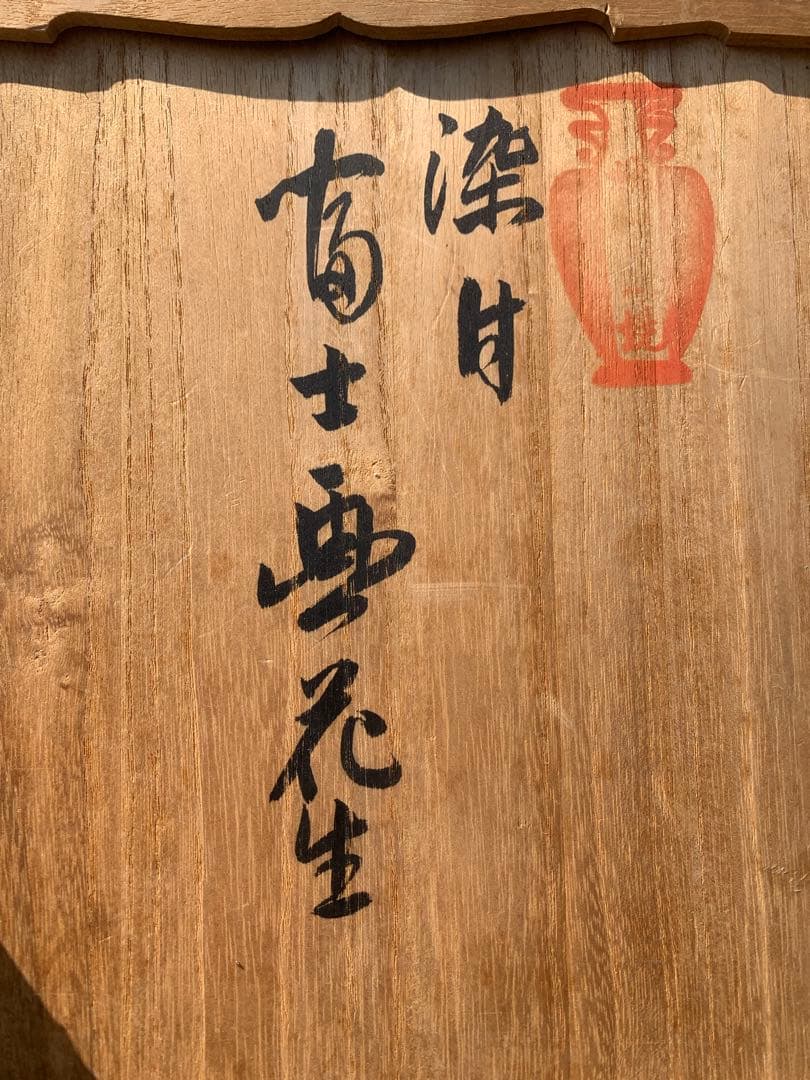 染付
富士画花生